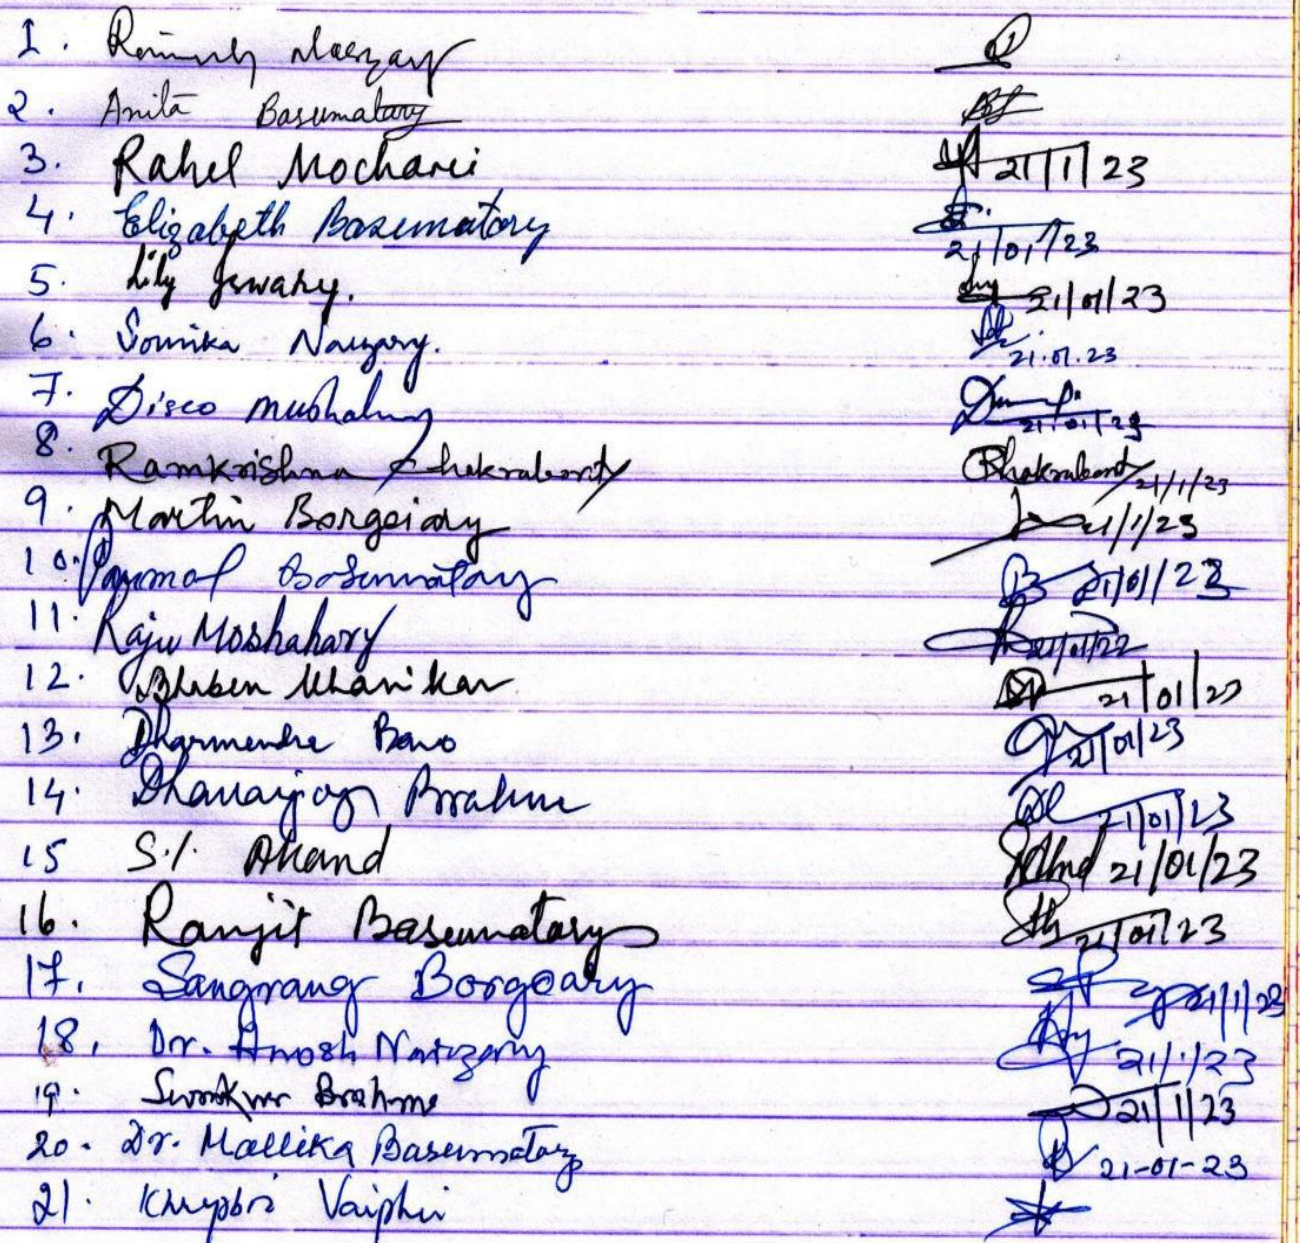 1.
2. Anita Basumatary
3. Rahel Mochari 21/1/23
4. Elizabeth Basumatary 21/01/23
5. Lily Iswary. 21/01/23
6. Somika Narzary. 21.01.23
7. Disco Mushahary 21/01/23
8. Ramkrishna Chakraborty Chakraborty 21/1/23
9. Martin Borgoiary 21/1/23
10. Parimal Basumatary 21/01/23
11. Raju Moshahary 21/01/22
12. Bhaben Khanikar 21/01/23
13. Dharmendra Boro 21/01/23
14. Dhananjoy Brahma 21/01/23
15 S.I. Ahand 21/01/23
16. Ranjit Basumatary 21/01/23
17. Sangrang Borgoary 21/1/23
18. Dr. Anosh Narzary 21/1/23
19. Brahma 21/1/23
20. Dr. Mallika Basumatary 21-01-23
21. Vaiphei